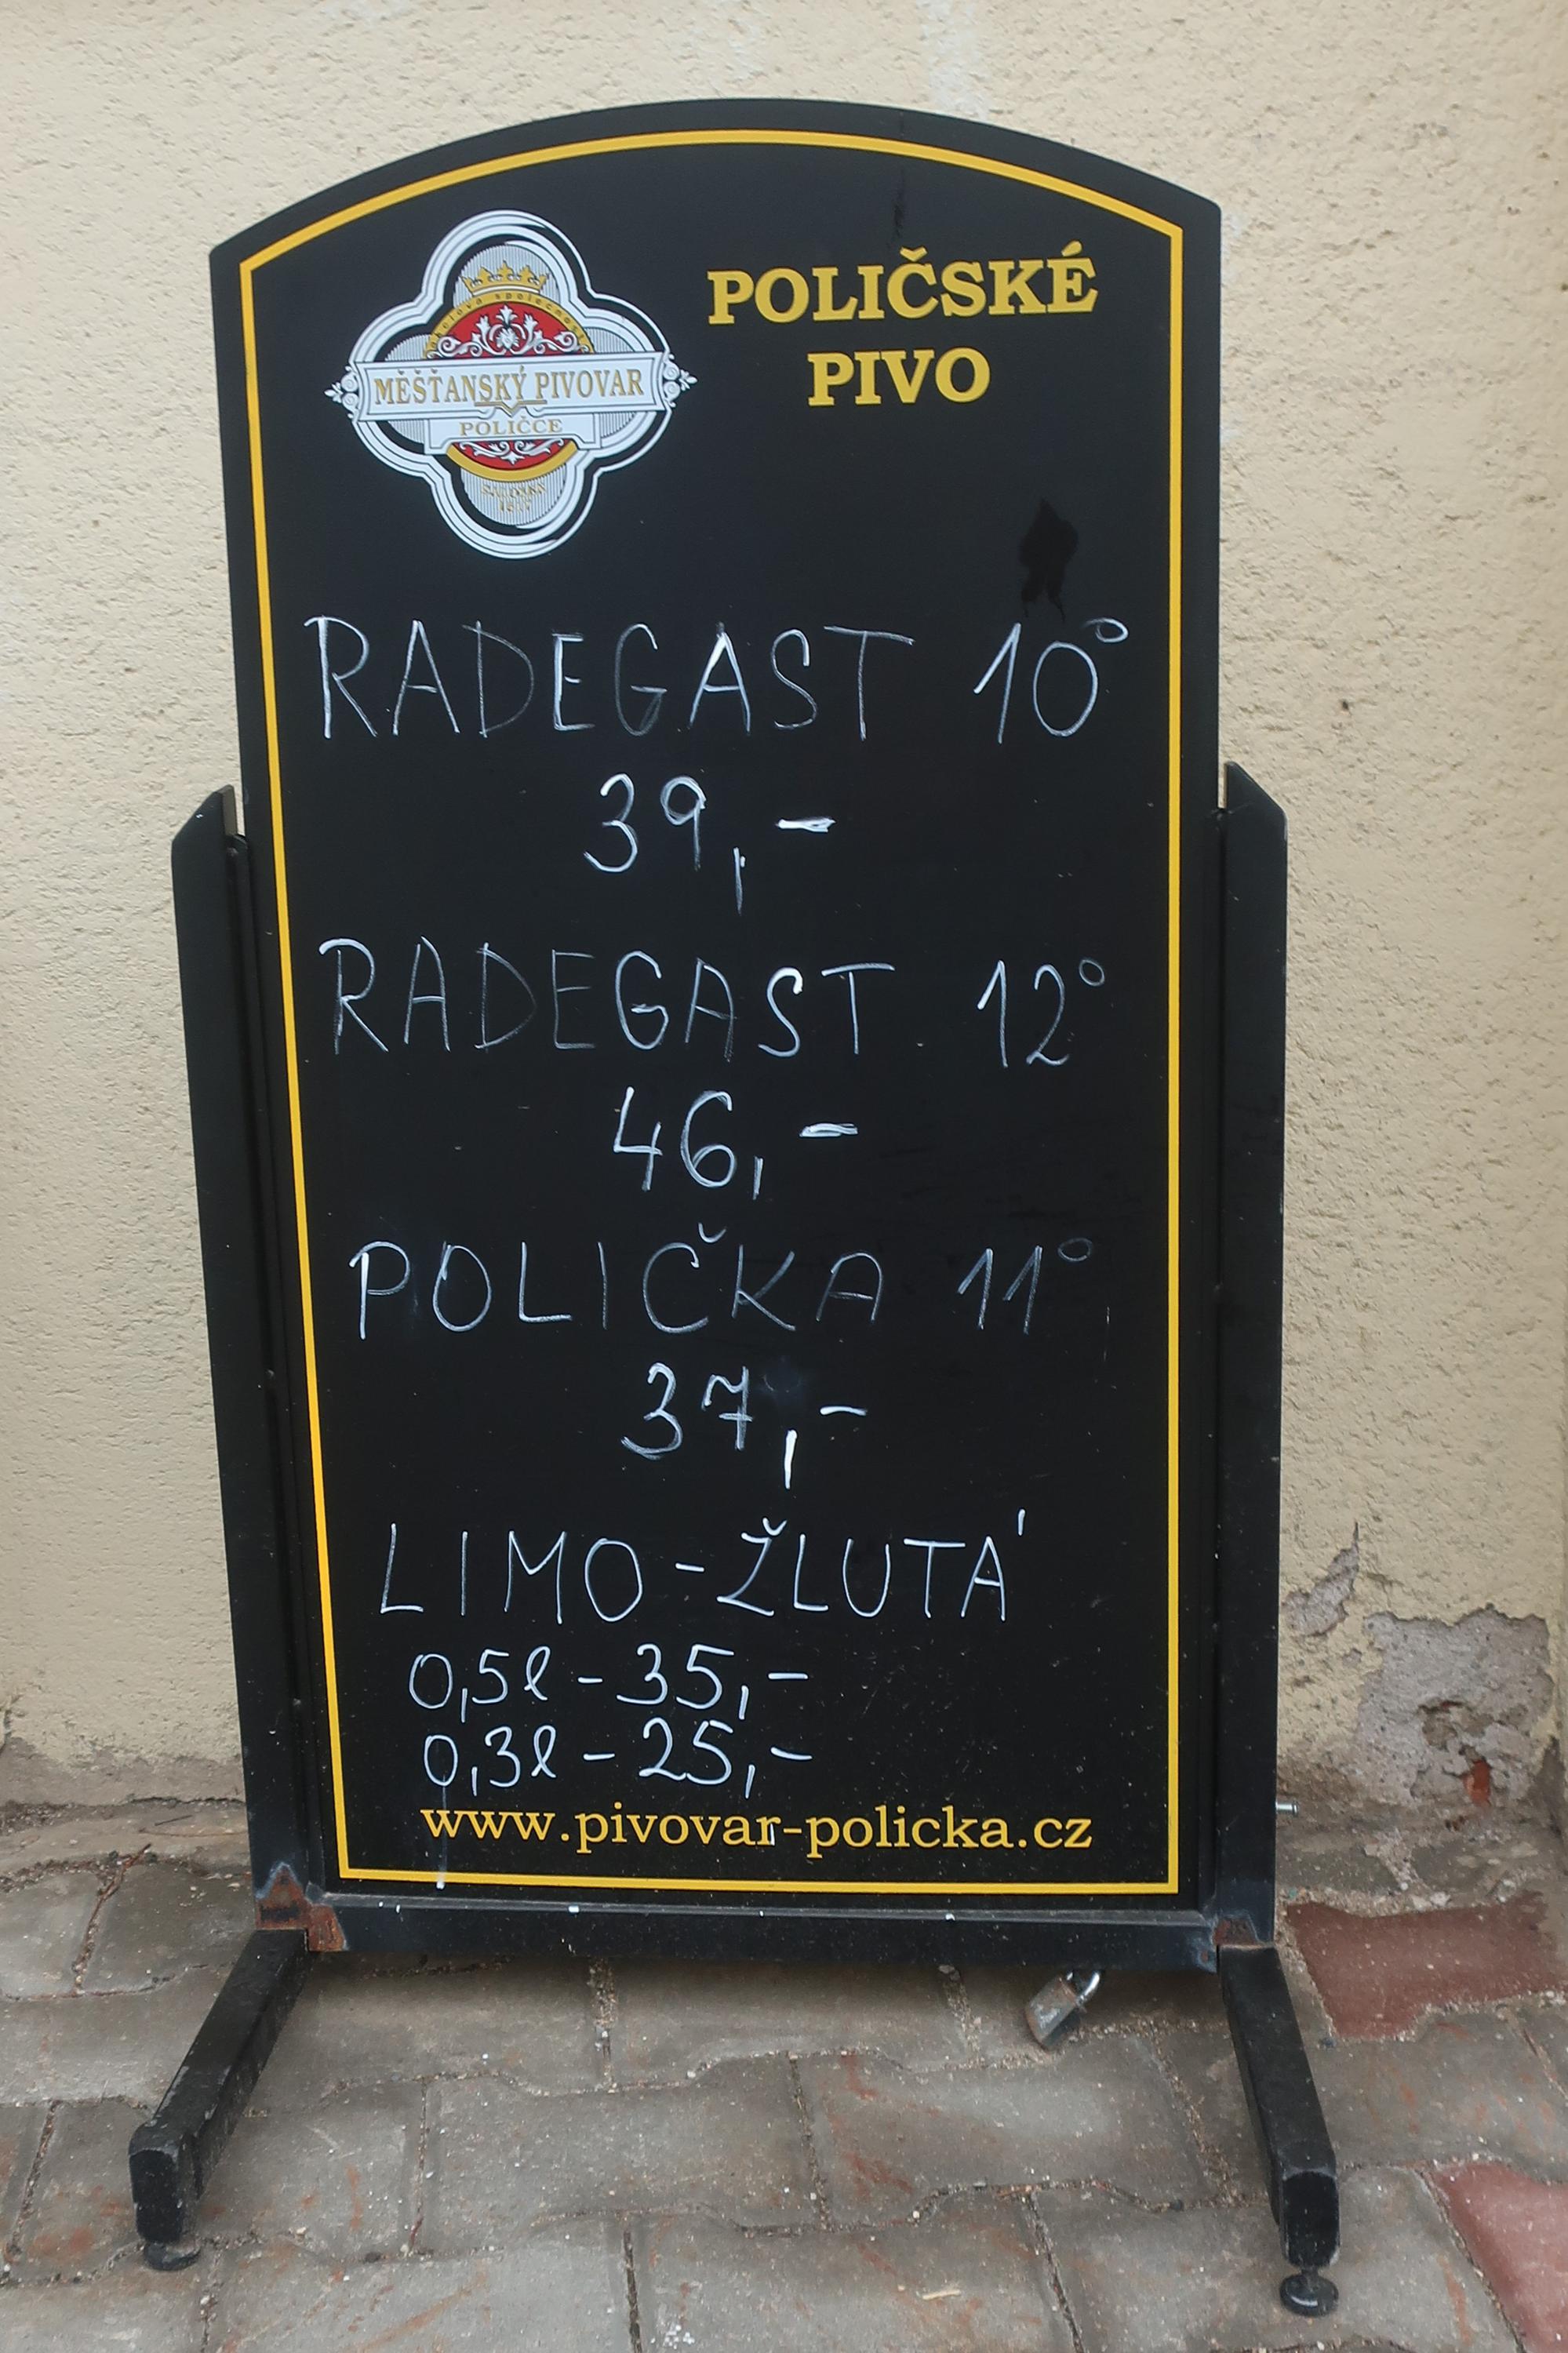 POLIČSKÉ
PIVO
MĚŠŤANSKÝ PIVOVAR
POLIČCE
RADEGAST 10°
39,-
RADEGAST 12°
46,-
POLIČKA 11°
37,-
LIMO-ŽLUTÁ
0,5l-35,-
0,3l-25,-
www.pivovar-policka.cz